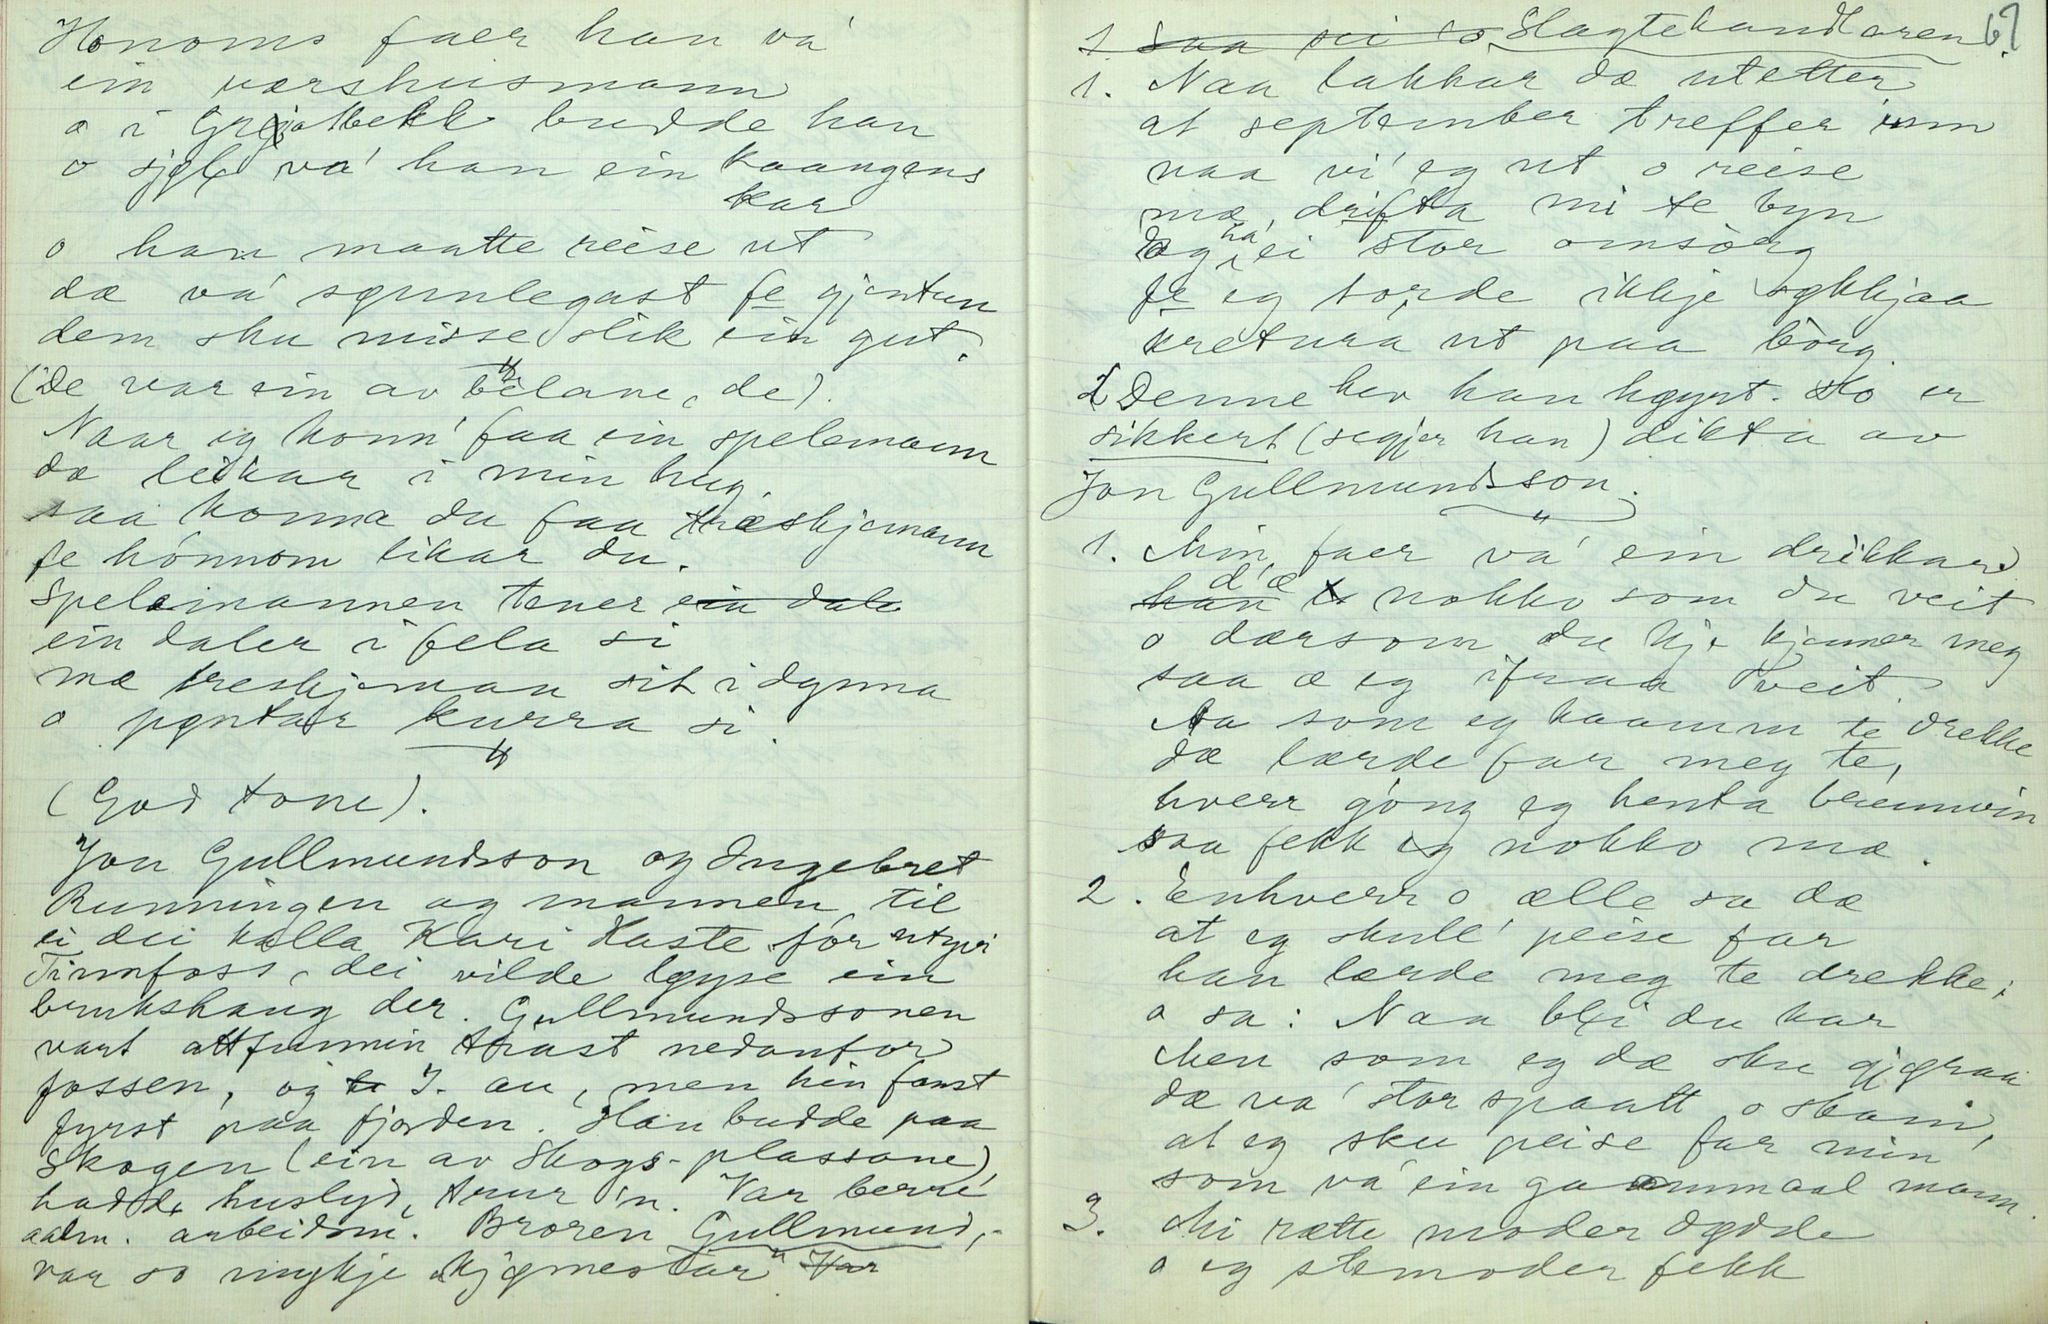 Honoms faer han va'
ein værshusmann
o i Grjotbekk budde han
o sjøl va' han ein kaangens
kar
o han maatte reise ut
dæ va' søunlegast fe gjentun
dem sku misse slik ein gut.
(De var ein av belane, de).
Naar eg konn' faa ein spelemann
dæ leikar i min hug,
saa konna du faa træskjemann
fe hónnom likar du.
Spelemannen tener ein dale
ein daler i fela si
mæ treskjeman sit i dynna
o pøntar kurra si.
(God tone).
Jon Gullmundsson og Ingebret
Runningen og mannen til
ei dei kalla Kari Haste for utyvi
Tinnfoss, dei vilde løyse ein
brukshaug der. Gullmundssonen
vart attfunnin strast nedanfor
fossen, og I. au, men hin fanst
fyrst paa fjorden. Han budde paa
Skogen (ein av Skogs-plassane),
hadde huslyd, trur 'n. Var berre
aalm. arbeidsm. Broren Gullmund,
var so mykje "kjømestar" Var
1 Saa sei eg Slagtehandlaren 67
1. Naa lakkar dæ utetter
at september treffer inn
naa vi' eg ut o reise
mæ drifta mi te byn
Eg ha' ei stor omsorg
fe eg torde ikkje søkkjaa
kretura ut paa borg.
2 Denne hev han høyrt. Ho er
sikkert (segjer han) dikta av
Jon Gullmundsson.
1. Min faer va' ein drikkar
han d'æ nokko som du veit
o dærsom du kje kjenner meg
saa æ eg ifraa Tveit.
Aa som eg kaamm te drekke
dæ lærde far meg te,
hverr gong eg henta brennvin
saa fekk eg nokko mæ.
2. Enhverr o ælle sa dæ
at eg skull' peise far
han lærde meg te drekke;
o sa: Naa bli du kar
Men som eg dæ sku gjøraa
dæ va' stor spaatt o skam,
at eg sku peise far min
som va' ein gaammaal mann.
3. Mi rætte moder døde
o eg stemoder fekk